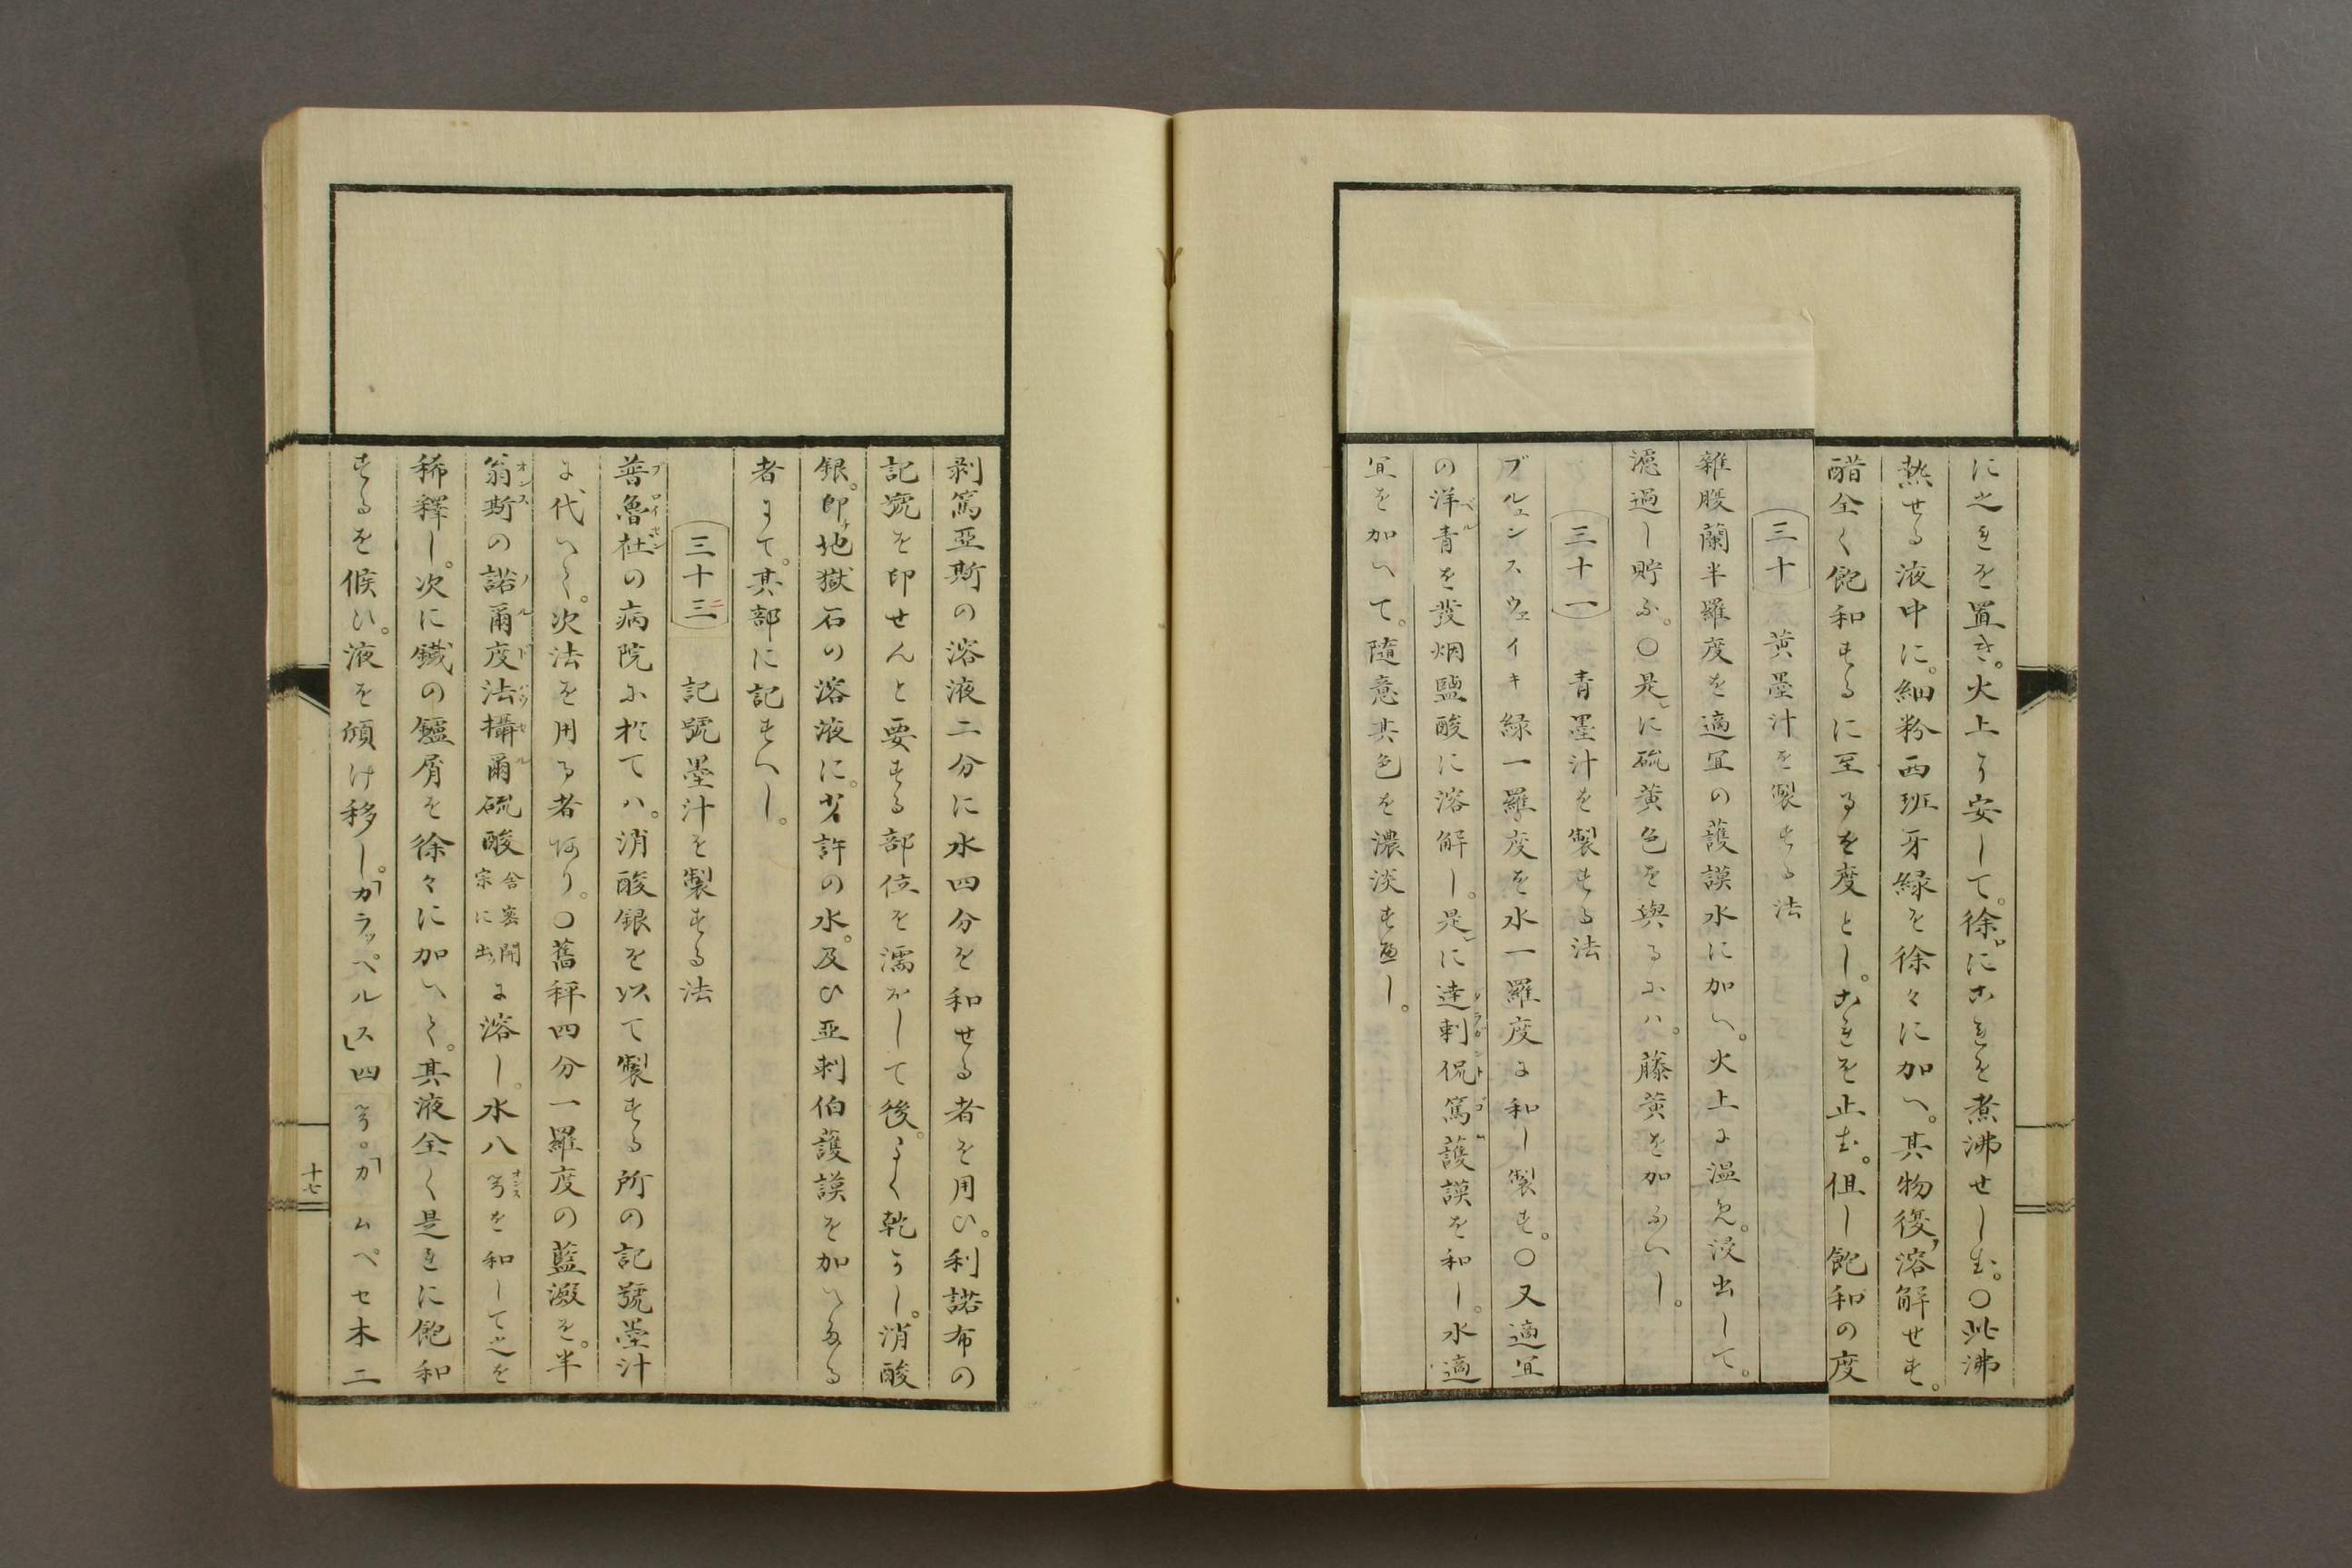 に之れを置き。火上に安して。徐〻にこれを煮沸せしむ。〇此沸
熱せる液中に。細粉西班牙緑を徐々に加へ。其物復溶解せす。
醋全く飽和するに至るを度とし。これを止む。但し飽和の度
三十 黄墨汁を製する法
雑腹蘭半羅度を適宜の護謨水に加へ。火上に温め。浸出して。
濾過し貯ふ。〇是に硫黄色を與るには。藤黄を加ふへし。
三十一 青墨汁を製する法
ブルェンスウェイキ緑一羅度を水一羅度に和し製す。〇又適宜
の洋青を発烟鹽酸に溶解し。是に達剌侃篤護謨を和し。水適
宜を加へて。随意其色を濃淡すへし。
剥篤亜斯の溶液二分に水四分を和せる者を用ひ。利諾布の
記號を印せんと要する部位を濡おして後。よく乾かし。消酸
銀。即チ地獄石の溶液に。少許の水。及ひ亜剌伯護謨を加へたる
者にて。其部に記すへし。
三十三 記號墨汁を製する法
普魯社の病院に於ては。消酸銀を以て製する所の記號墨汁
に代へて。次法を用る者あり。〇舊秤四分一羅度の藍澱を。半
翁斯の諾爾度法攝爾硫酸舎密開宗に出ツに溶し。水八オンスを和して之を
稀釋し。次に鐵の鑢屑を徐々に加へて。其液全く是れに飽和
するを候ひ。液を傾け移し。「ガラッペルス」四ヲンス。「カムペセ木二
十七